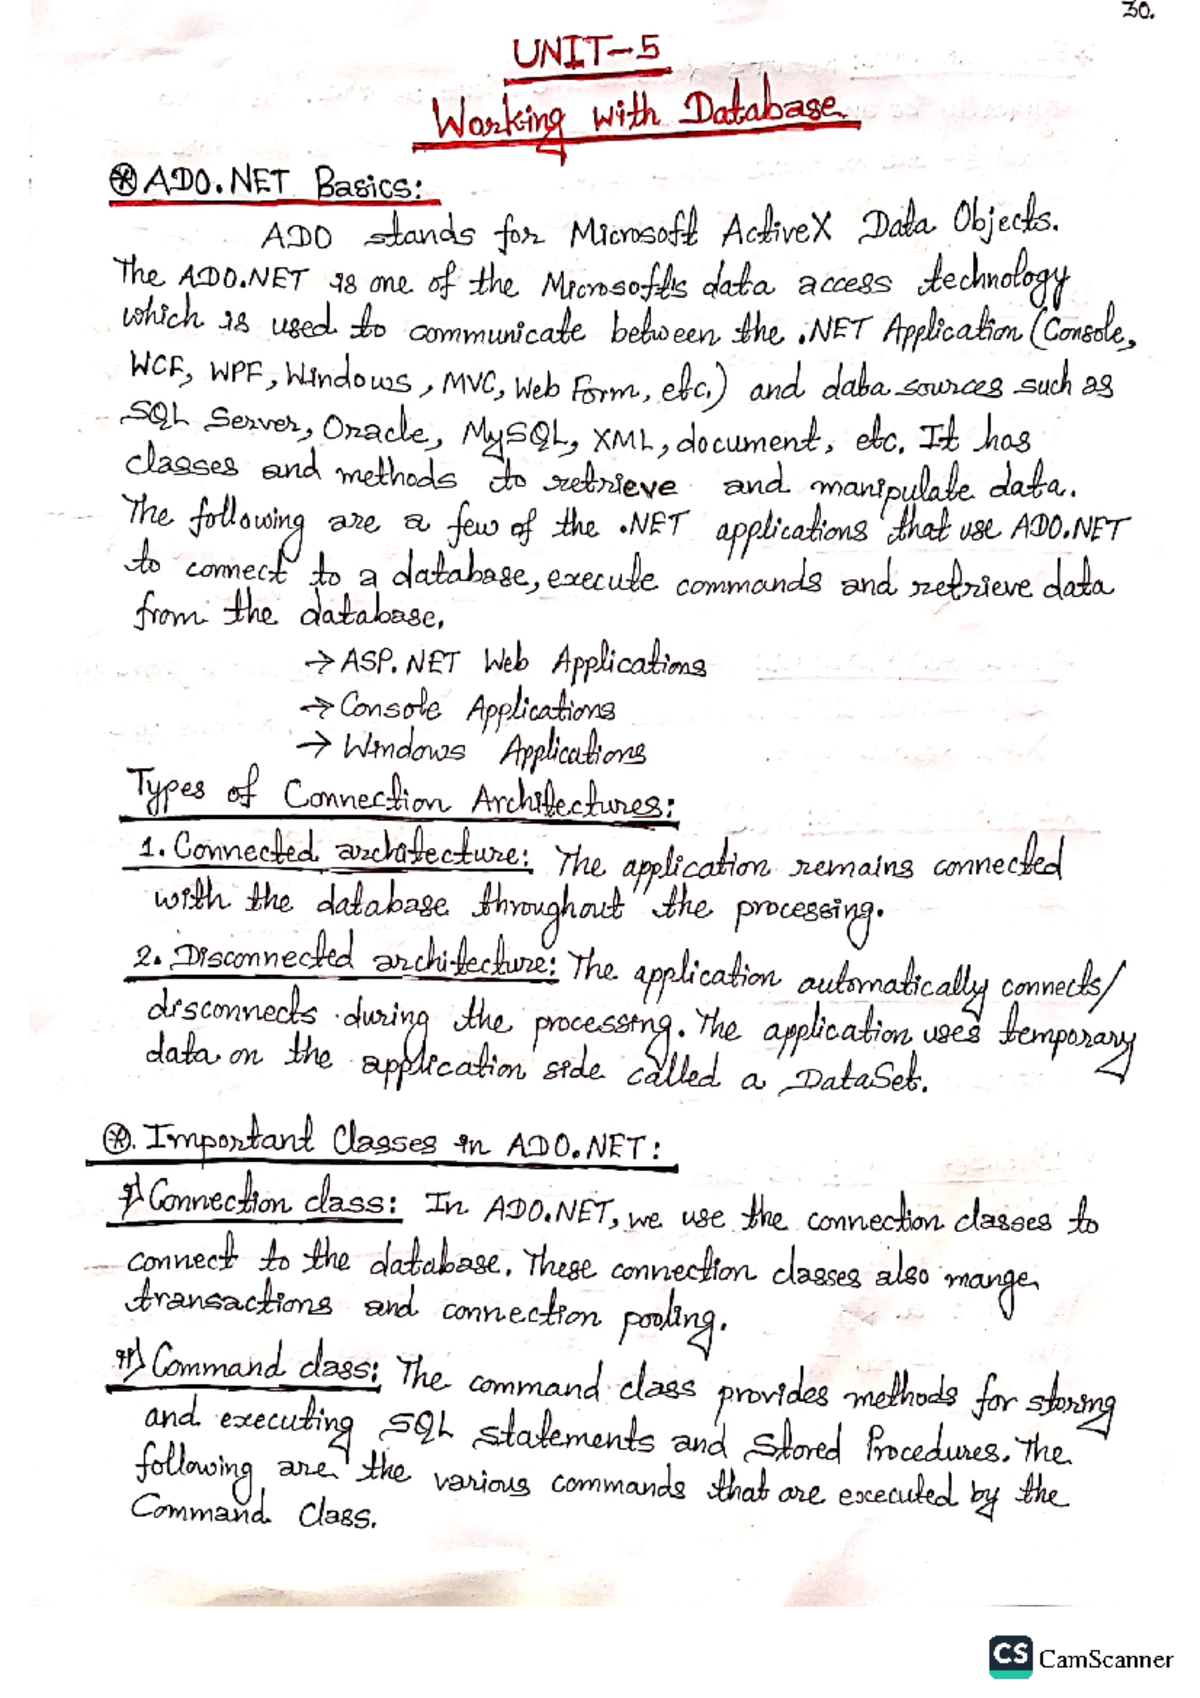 30.
UNIT-5
Working with Database
⊛ ADO.NET Basics:
ADO stands for Microsoft ActiveX Data Objects.
The ADO.NET is one of the Microsoft's data access technology
which is used to communicate between the .NET Application (Console,
WCF, WPF, Windows, MVC, Web Form, etc.) and data sources such as
SQL Server, Oracle, MySQL, XML, document, etc. It has
classes and methods to retrieve and manipulate data.
The following are a few of the .NET applications that use ADO.NET
to connect to a database, execute commands and retrieve data
from the database.
→ ASP.NET Web Applications
→ Console Applications
→ Windows Applications
Types of Connection Architectures:
1. Connected architecture: The application remains connected
with the database throughout the processing.
2. Disconnected architecture: The application automatically connects/
disconnects during the processing. The application uses temporary
data on the application side called a DataSet.
⊛. Important Classes in ADO.NET:
i) Connection class: In ADO.NET, we use the connection classes to
connect to the database. These connection classes also mange
transactions and connection pooling.
ii) Command class: The command class provides methods for storing
and executing SQL statements and Stored Procedures. The
following are the various commands that are executed by the
Command Class.
CS CamScanner